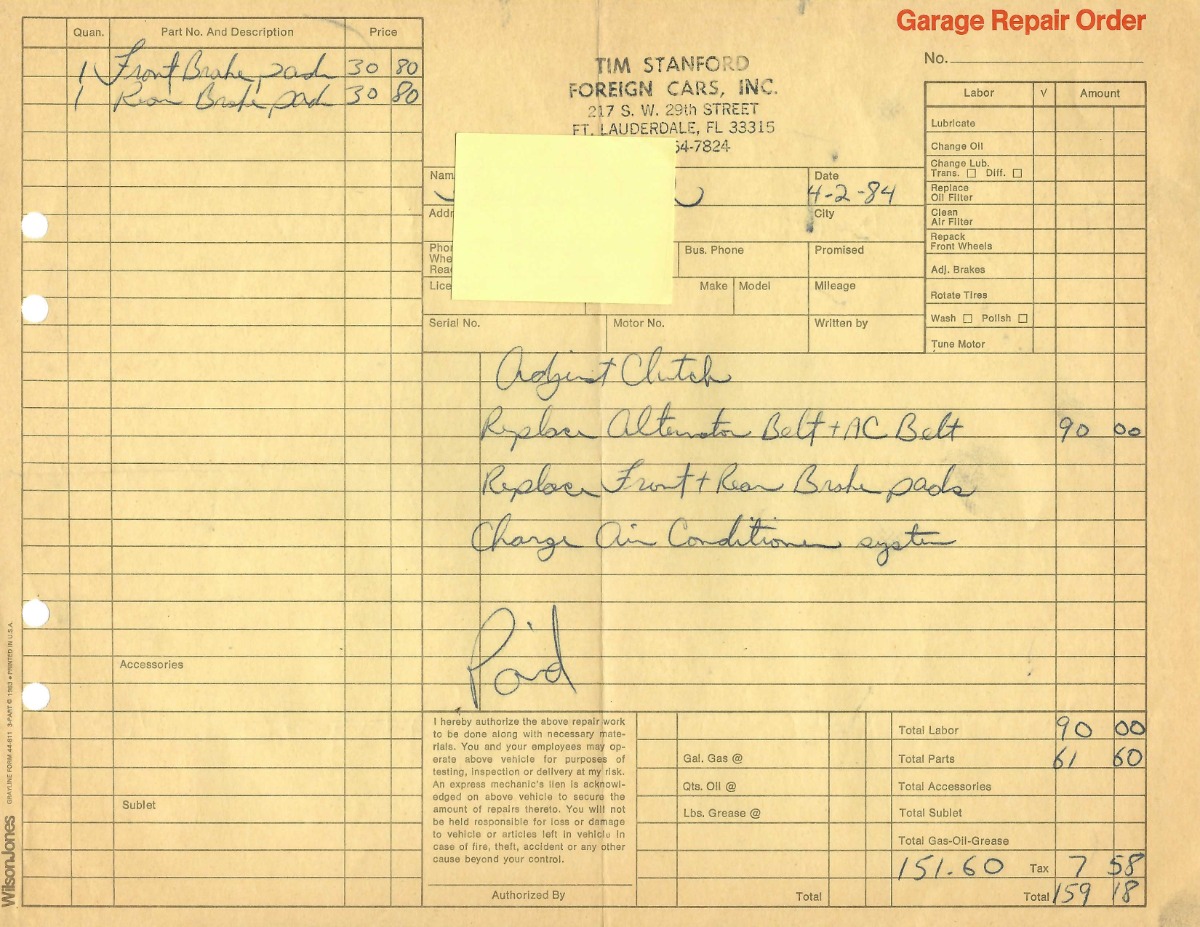 Garage Repair Order
No.
Quan. Part No. And Description Price
1 Front Brake pad 30 80
1 Rear Brake pad 30 80
TIM STANFORD
FOREIGN CARS, INC.
217 S. W. 29th STREET
FT. LAUDERDALE, FL 33315
54-7824
Nam
Date
4-2-84
Addr
City
Phon
Whe
Rea
Bus. Phone
Promised
Lice
Make
Model
Mileage
Serial No.
Motor No.
Written by
Labor √ Amount
Lubricate
Change Oil
Change Lub.
Trans. □ Diff. □
Replace
Oil Filter
Clean
Air Filter
Repack
Front Wheels
Adj. Brakes
Rotate Tires
Wash □ Polish □
Tune Motor
Adjust Clutch
Replace Alternator Belt + AC Belt 90 00
Replace Front + Rear Brake pads
Charge Air Conditioner system
Paid
Accessories
Sublet
I hereby authorize the above repair work
to be done along with necessary mate-
rials. You and your employees may op-
erate above vehicle for purposes of
testing, inspection or delivery at my risk.
An express mechanic's lien is acknowl-
edged on above vehicle to secure the
amount of repairs thereto. You will not
be held responsible for loss or damage
to vehicle or articles left in vehicle in
case of fire, theft, accident or any other
cause beyond your control.
Authorized By
Gal. Gas @
Qts. Oil @
Lbs. Grease @
Total
Total Labor 90 00
Total Parts 61 60
Total Accessories
Total Sublet
Total Gas-Oil-Grease
151.60 Tax 7 58
Total 159 18
WilsonJones
GRAYLINE FORM 44-611 3-PART © 1983 • PRINTED IN U.S.A.